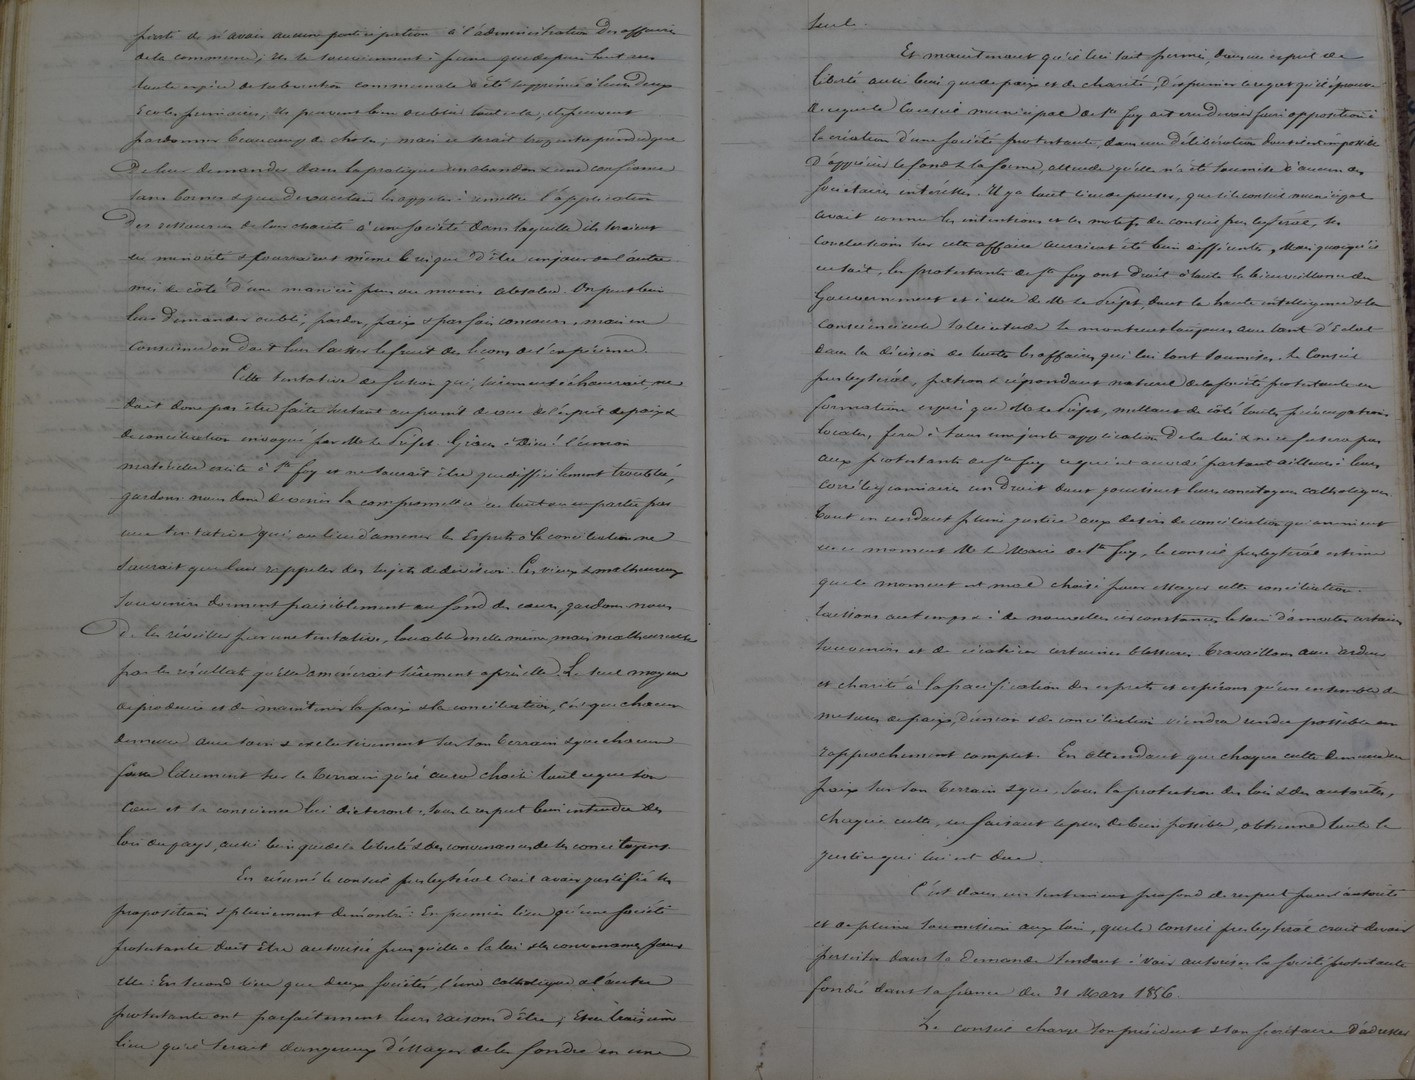 porté de n'avoir aucune participation à l'administration des affaires
de la commune; ils se souviennent à peine que depuis huit ans
toute espèce de subvention communale a été supprimée à leurs deux
Ecoles primaires; ils peuvent bien oublier tout cela, ils peuvent
pardonner beaucoup de choses; mais ce serait trop entreprendre que
de leur demander dans la pratique un abandon & une confiance
sans bornes & que de vouloir les appeler à remettre l'application
des ressources de leur charité à une Société dans laquelle ils seraient
en minorité & pourraient même le risque d'être un jour ou l'autre
mis de côté d'une manière plus ou moins absolue. On peut bien
leur demander oubli, pardon, paix & parfois concours, mais en
conscience on doit leur laisser le fruit des leçons de l'expérience.
Cette tentative de fusion qui, sûrement échouerait, ne
doit donc pas être faite surtout au point de vue de l'esprit de paix &
de conciliation invoqué par Mr le Préfet. Grâces à Dieu l'union
matérielle existe à Ste Foy et ne saurait être que difficilement troublée;
gardons nous donc de venir la compromettre en tout ou en partie par
une tentative qui au lieu d'amener les Esprits à la conciliation ne
saurait que leur rappeler des sujets de division. Ces vieux & malheureux
souvenirs dorment paisiblement au fond des cœurs, gardons nous
de les réveiller par une tentative, louable en elle même, mais malheureuse
par les résultats qu'elle amènerait sûrement après elle. Le seul moyen
de produire et de maintenir la paix & la conciliation, c'est que chacun
demeure avec soin & exclusivement sur son terrain & que chacun
fasse librement sur le terrain qu'il aura choisi tout ce que son
cœur et sa conscience lui dicteront, sous le respect bien entendu des
lois du pays, aussi bien que de la liberté & des convenances de ses concitoyens
En résumé le conseil presbytéral croit avoir justifié ses
propositions & pleinement démontré: En premier lieu qu'une Société
protestante doit être autorisée puisqu'elle a la loi & les convenances pour
elle: En second lieu que deux Sociétés, l'une catholique & l'autre
protestante ont parfaitement leurs raisons d'être; & en troisième
lieu qu'il serait dangereux d'essayer de les fondre en une
seule.
Et maintenant qu'il lui soit permis, dans un esprit de
liberté aussi bien que de paix et de charité, d'exprimer le regret qu'il éprouve
de ce que le Conseil municipal de Ste Foy ait cru devoir faire opposition à
la création d'une Société protestante, dans une délibération dont il est impossible
d'apprécier le fond & la forme, attendu qu'elle n'a été soumise à aucun des
sociétaires intéressés. Il y a tout lieu de penser, que si le conseil municipal
avait connu les intentions et les motifs du conseil presbytéral, ses
conclusions sur cette affaire auraient été bien différentes. Mais quoiqu'il
en soit, les protestants de Ste Foy ont droit à toute la bienveillance du
Gouvernement et à celle de Mr le Préfet, dont la haute intelligence & la
consciencieuse sollicitude se montrent toujours avec tant d'Eclat
dans la décision de toutes les affaires qui lui sont soumises. Le Conseil
presbytéral, patron & répondant naturel de la Société protestante en
formation espère que Mr le Préfet, mettant de côté toutes préoccupations
locales, fera à tous une juste application de la loi & ne refusera pas
aux protestants de Ste Foy ce qui est accordé partout ailleurs à leurs
corréligionnaires un droit dont jouissent leurs concitoyens catholiques.
Tout en rendant pleine justice aux désirs de conciliation qui animent
en ce moment Mr le Maire de Ste Foy, le conseil presbytéral estime
que le moment est mal choisi pour essayer cette conciliation.
Laissons au temps & à de nouvelles circonstances le soin d'émousser certains
souvenirs et de cicatriser certaines blessures. Travaillons avec ardeur
et charité à la pacification des esprits et espérons qu'un ensemble de
mesures de paix, d'union & de conciliation viendra rendre possible un
rapprochement complet. En attendant que chaque culte demeure en
paix sur son terrain & que, sous la protection des lois & des autorités,
chaque culte, en faisant le plus de bien possible, obtienne toute la
justice qui lui est due.
C'est dans un sentiment profond de respect pour l'autorité
et de pleine soumission aux lois, que le conseil presbytéral croit devoir
persister dans sa demande tendant à voir autoriser la Société protestante
fondée dans sa séance du 31 Mars 1856.
Le conseil charge son président & son secrétaire d'adresser